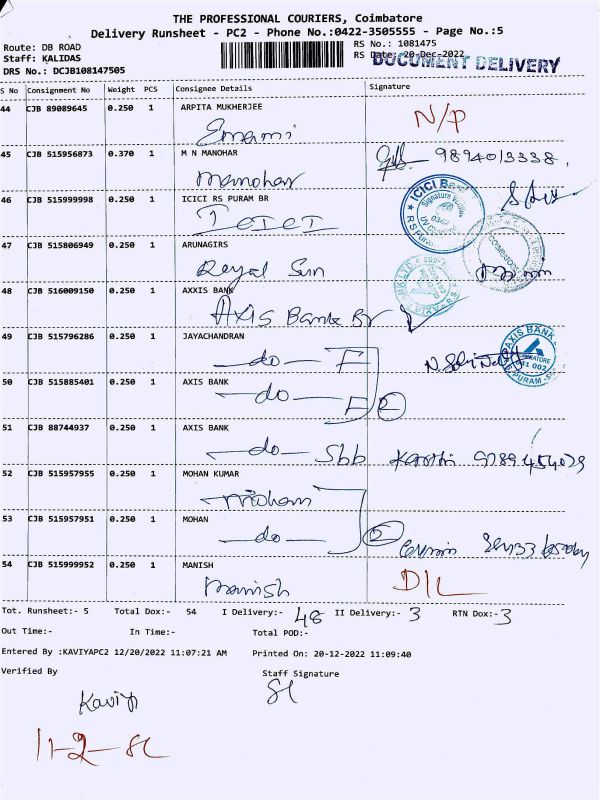 THE PROFESSIONAL COURIERS, Coimbatore
Delivery Runsheet - PC2 - Phone No.:0422-3505555 - Page No.:5
Route: DB ROAD
RS No.: 1081475
Staff: KALIDAS
RS Date: 20-Dec-2022
DOCUMENT DELIVERY
DRS No.: DCJB108147505
S No Consignment No Weight PCS Consignee Details Signature
44 CJB 89089645 0.250 1 ARPITA MUKHERJEE
Emami N/P
45 CJB 515956873 0.370 1 M N MANOHAR
Manohar 9894013338,
46 CJB 515999998 0.250 1 ICICI RS PURAM BR
ICICI
47 CJB 515806949 0.250 1 ARUNAGIRS
Royal Sun
48 CJB 516009150 0.250 1 AXXIS BANK
AXIS Bank Br
49 CJB 515796286 0.250 1 JAYACHANDRAN
-do-
AXIS BANK
50 CJB 515885401 0.250 1 AXIS BANK
-do- 2
51 CJB 88744937 0.250 1 AXIS BANK
-do-
52 CJB 515957955 0.250 1 MOHAN KUMAR
Mohan
53 CJB 515957951 0.250 1 MOHAN
-do- 2
54 CJB 515999952 0.250 1 MANISH
Manish D/L
Tot. Runsheet:- 5 Total Dox:- 54 I Delivery:- 48 II Delivery:- 3 RTN Dox:- 3
Out Time:- In Time:- Total POD:-
Entered By :KAVIYAPC2 12/20/2022 11:07:21 AM Printed On: 20-12-2022 11:09:40
Verified By Staff Signature
Kaviya